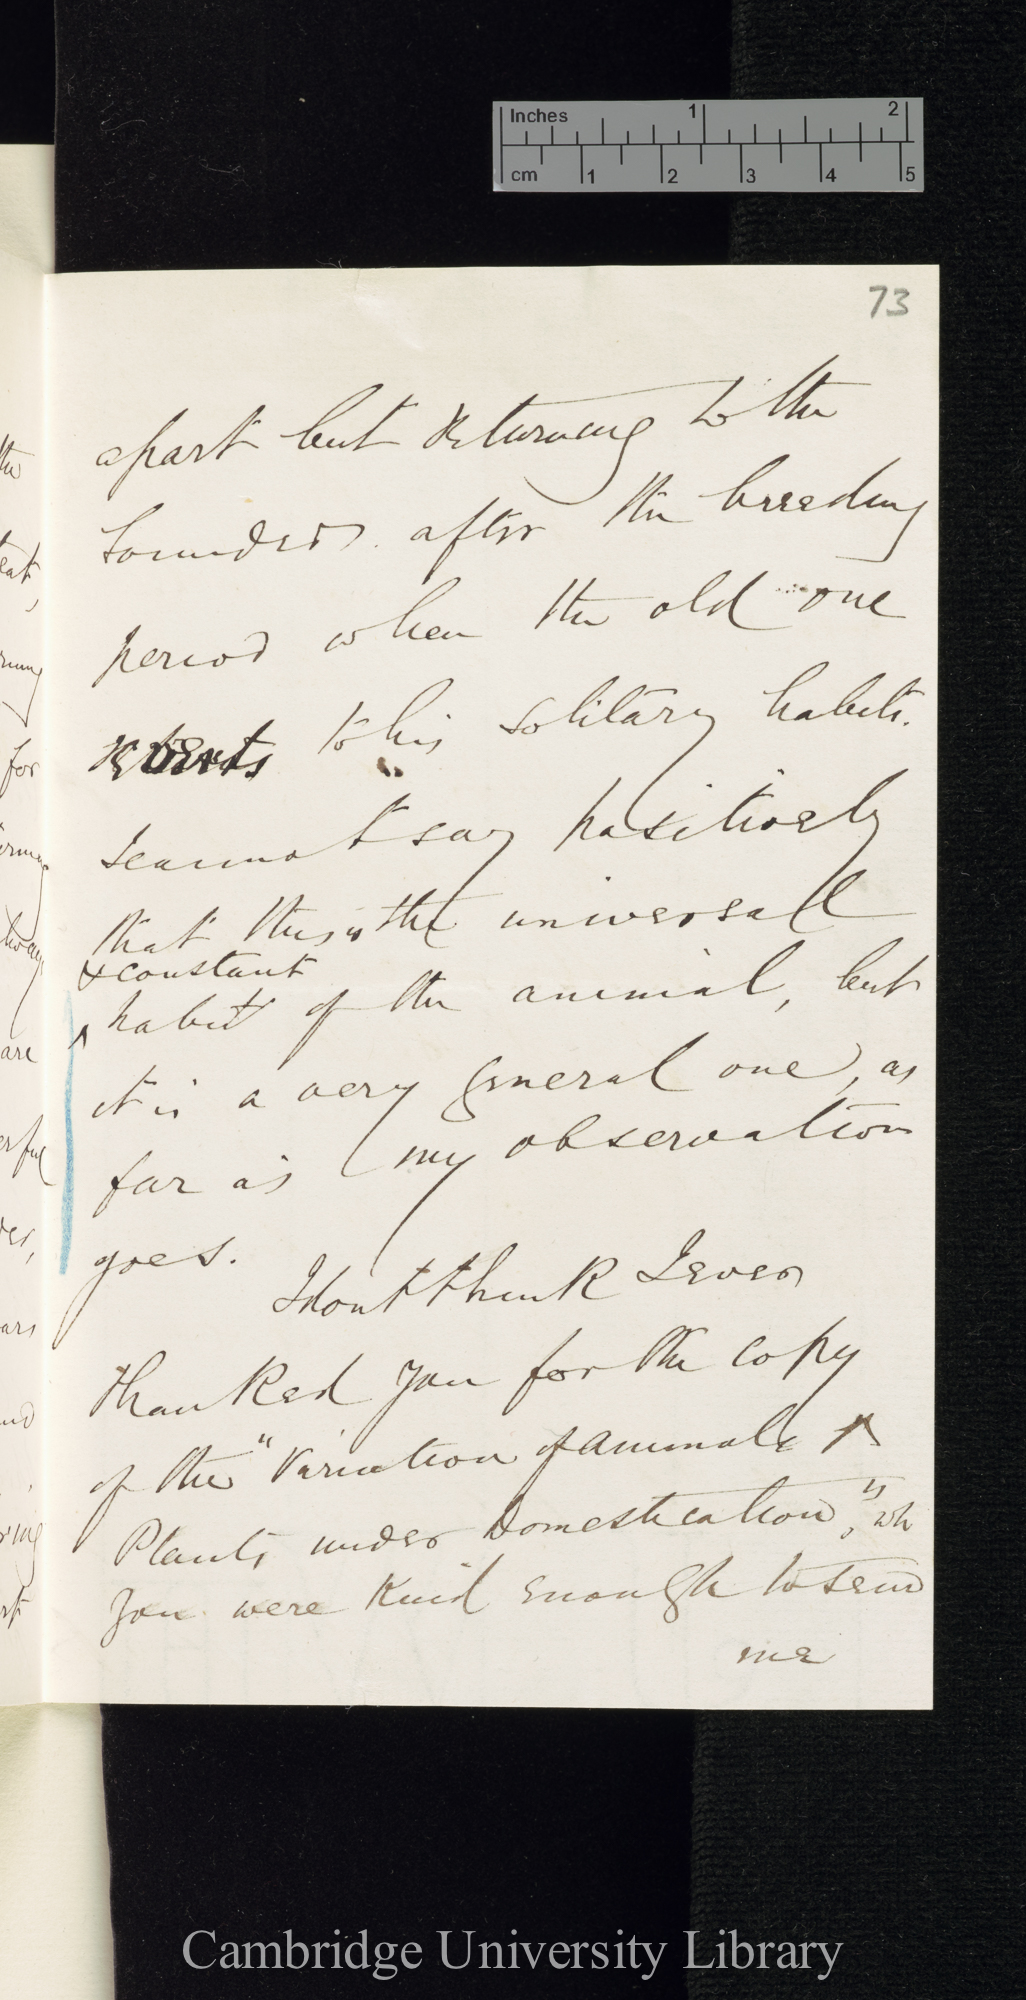 Inches 1 2
cm 1 2 3 4 5
73
apart but returning to the
Sounders after the breeding
period when the old one
reverts to his solitary habits.
I cannot say positively
that this is the universal
& constant
habit of the animal, but
it is a very general one, as
far as my observation
goes.
I don't think I ever
thanked you for the copy
of the "Variation of Animals &
Plants under Domestication", wh
you were kind enough to send
me
Cambridge University Library